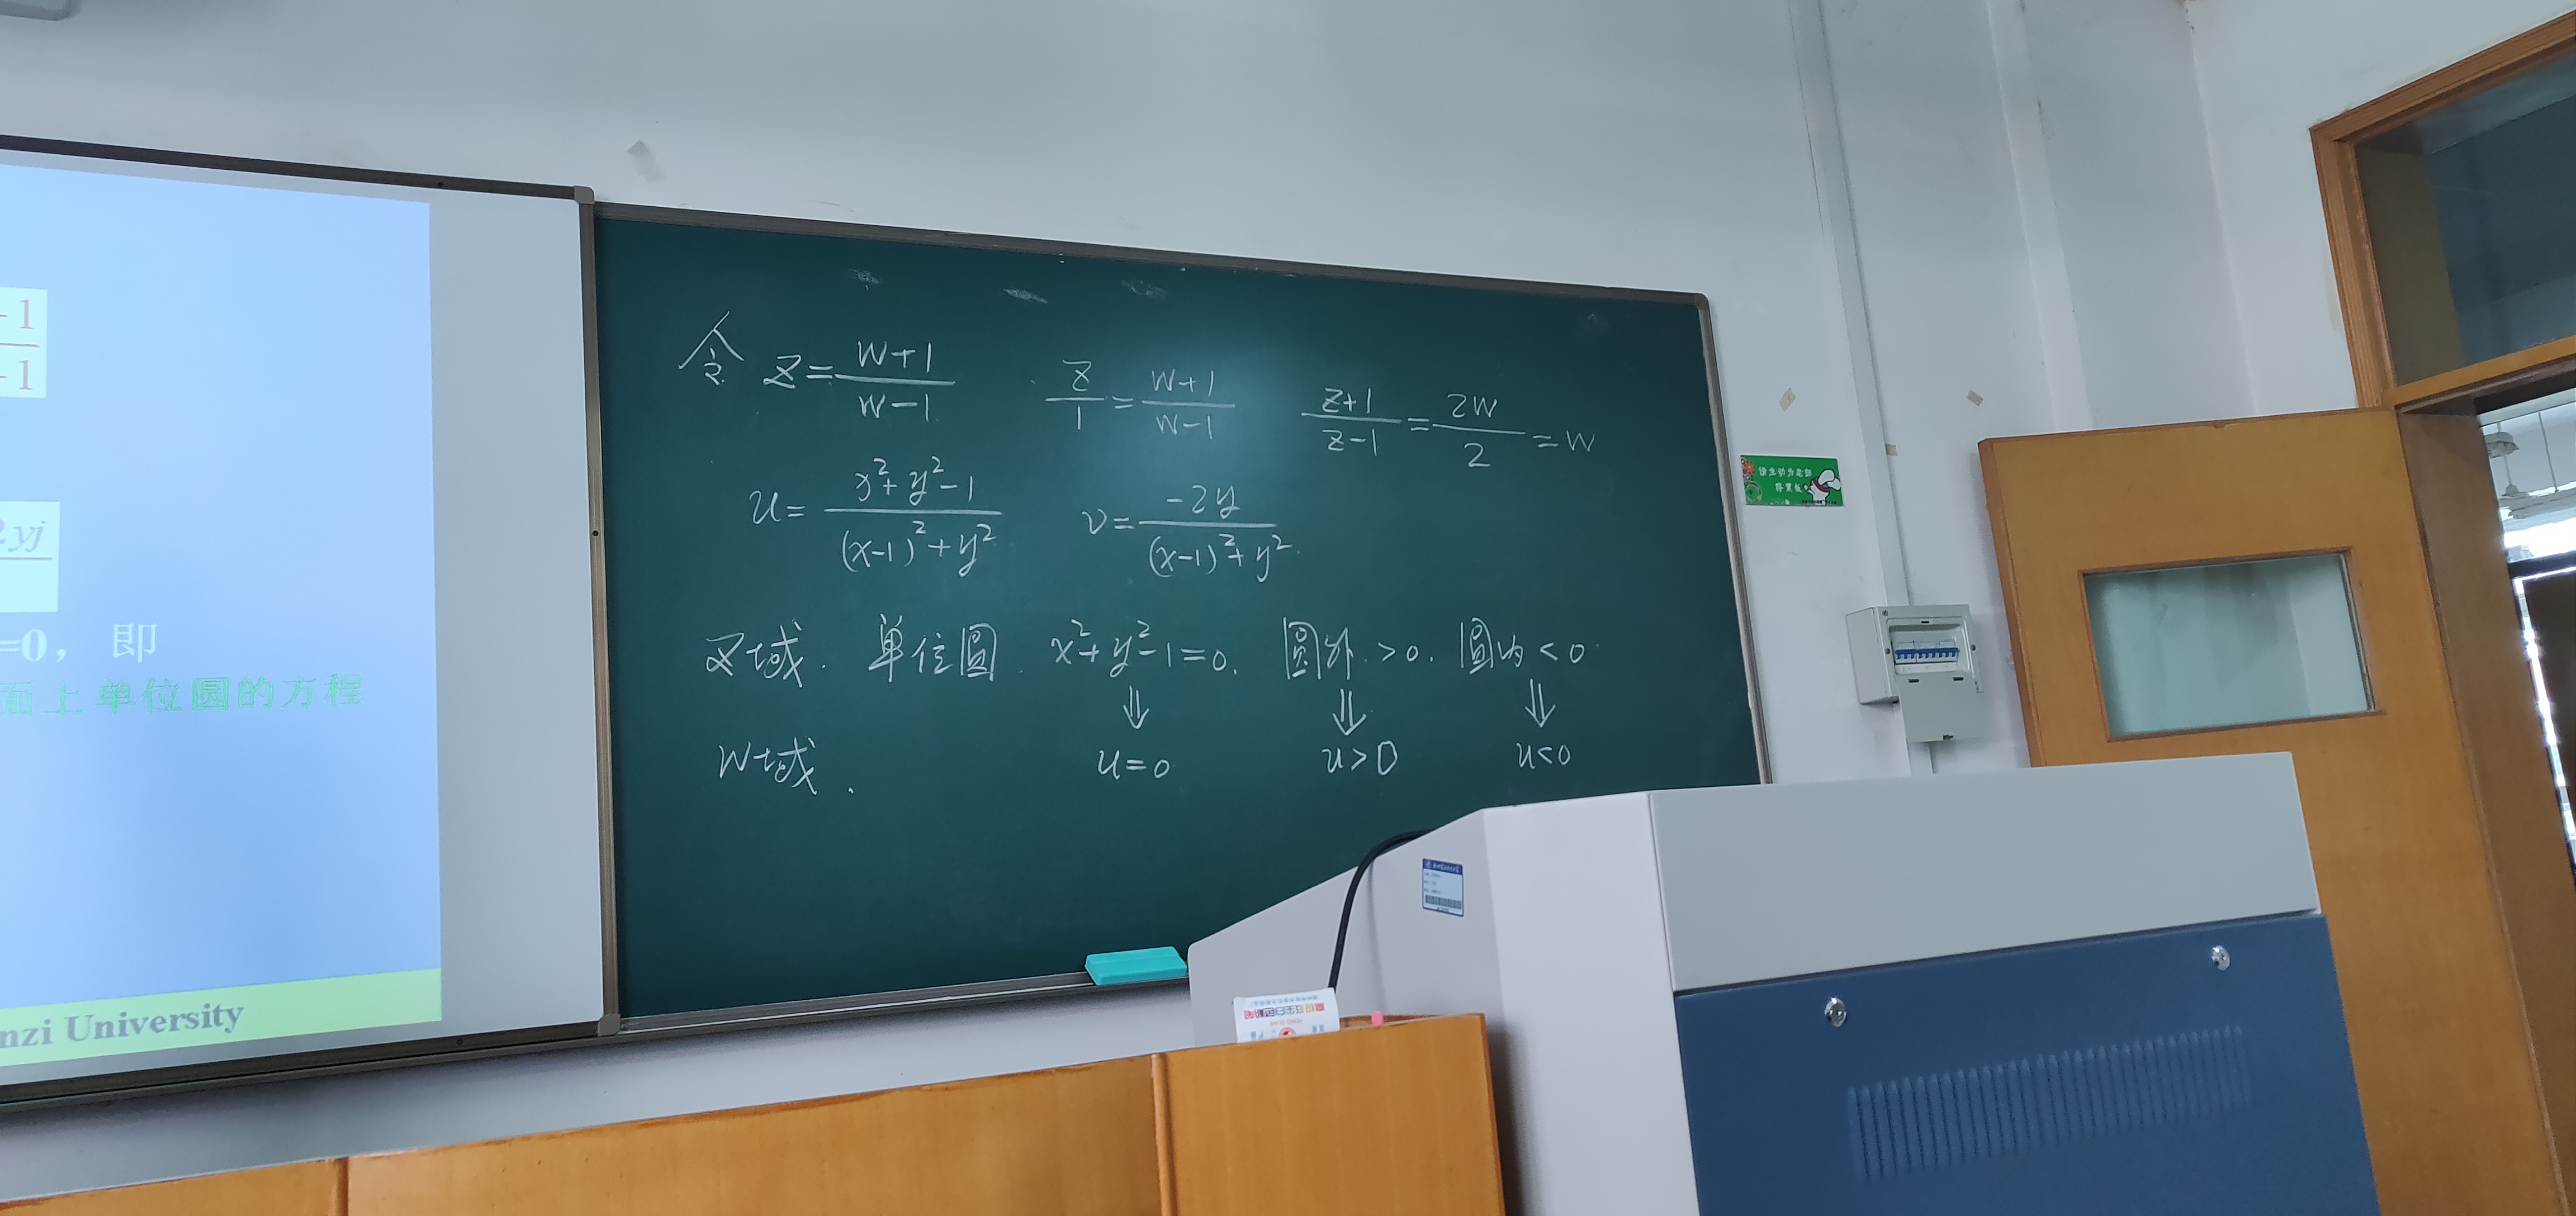 -1
-1
2yj
=0，即
面上单位圆的方程
nzi University
令 Z=(W+1)/(W-1) Z/1=(W+1)/(W-1) (Z+1)/(Z-1)=2W/2=W
u=(x²+y²-1)/((x-1)²+y²) v=(-2y)/((x-1)²+y²)
Z域. 单位圆 x²+y²-1=0. 圆外>0. 圆内<0
⇓ ⇓ ⇓
W域. u=0 u>0 u<0